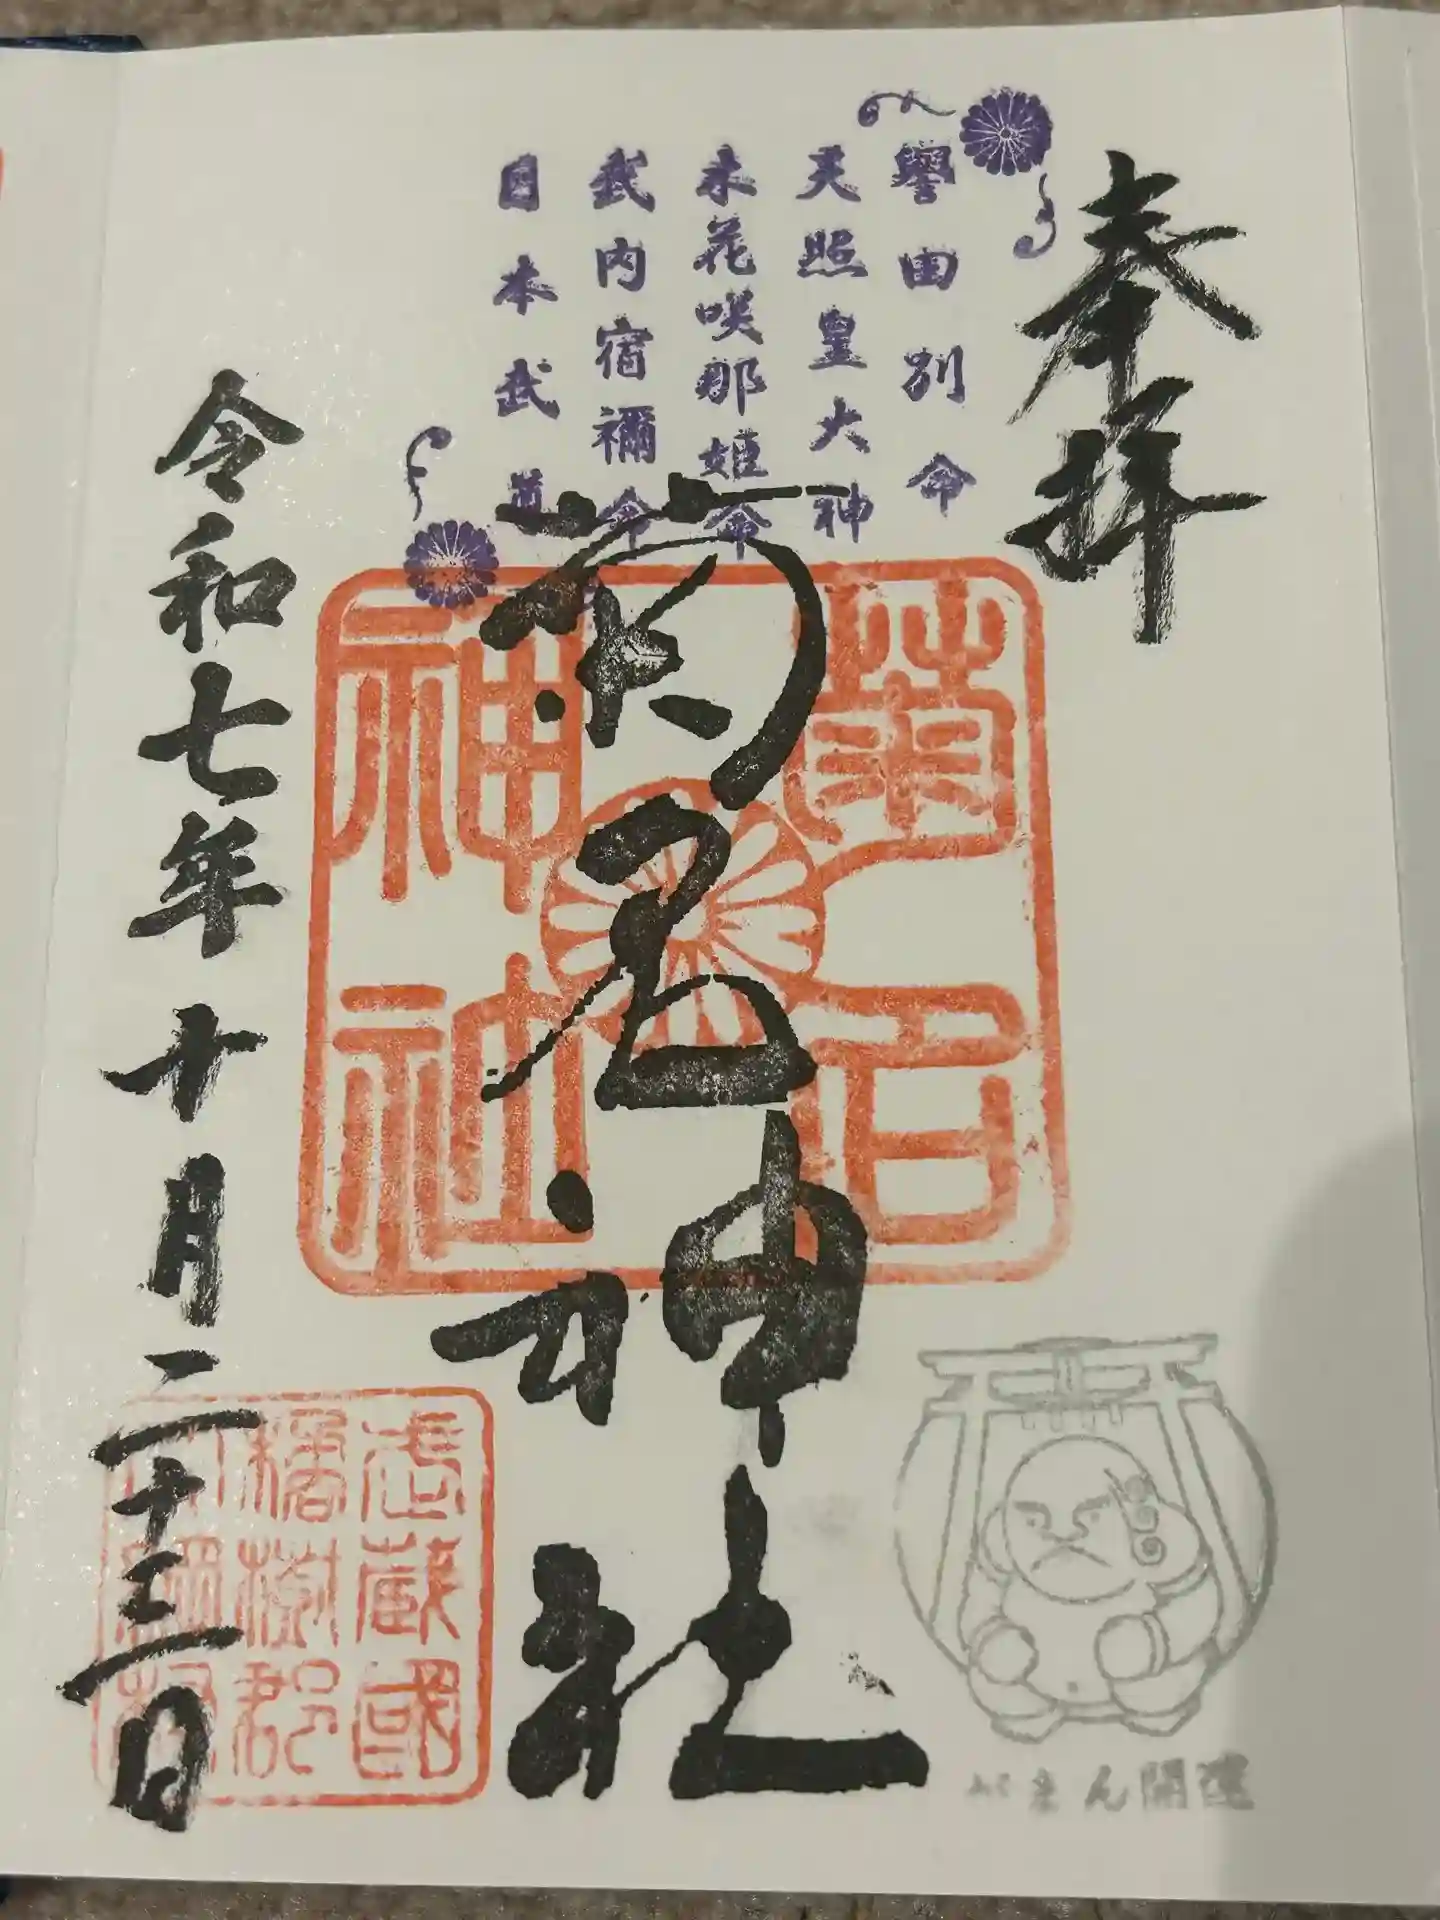 奉拝
譽田別命
天照皇大神
木花咲耶姫命
武内宿禰命
日本武尊
菊名神社
菊名
神社
令和七年十月二十三日
武蔵國
橘樹郡
がまん開運